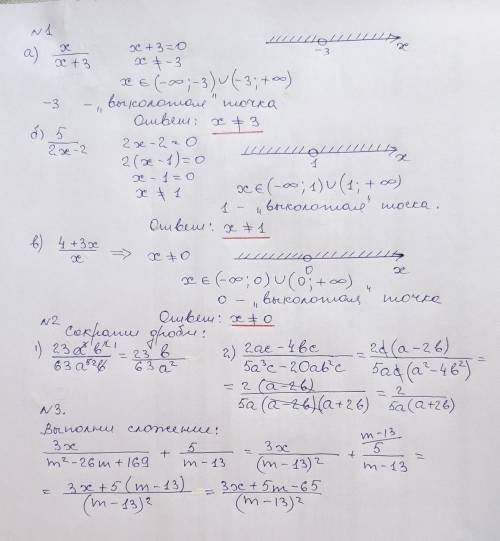 №1
а) x/(x+3)   x+3=0   -3   x
x ≠ -3
x ∈ (-∞; -3) ∪ (-3; +∞)
-3 - „выколотая" точка
Ответ: x ≠ 3
б) 5/(2x-2)   2x-2=0   1   x
2(x-1)=0
x-1=0
x ≠ 1   x ∈ (-∞; 1) ∪ (1; +∞)
1 - „выколотая" точка.
Ответ: x ≠ 1
в) (4+3x)/x ⇒ x ≠ 0   0   x
x ∈ (-∞; 0) ∪ (0; +∞)
0 - „выколотая" точка
Ответ: x ≠ 0
№2
Сократи дроби:
1) = 23 b/(63 a²)   2) (2ac-4bc)/(5a³c-20ab²c) = 2c(a-2b)/(5ac(a²-4b²)) =
= 2(a-2b)/(5a(a-2b)(a+2b)) = 2/(5a(a+2b))
№3.
Выполни сложение:
3x/(m²-26m+169) + 5/(m-13) = 3x/(m-13)² + 5/(m-13) m-13 =
= (3x+5(m-13))/(m-13)² = (3x+5m-65)/(m-13)²